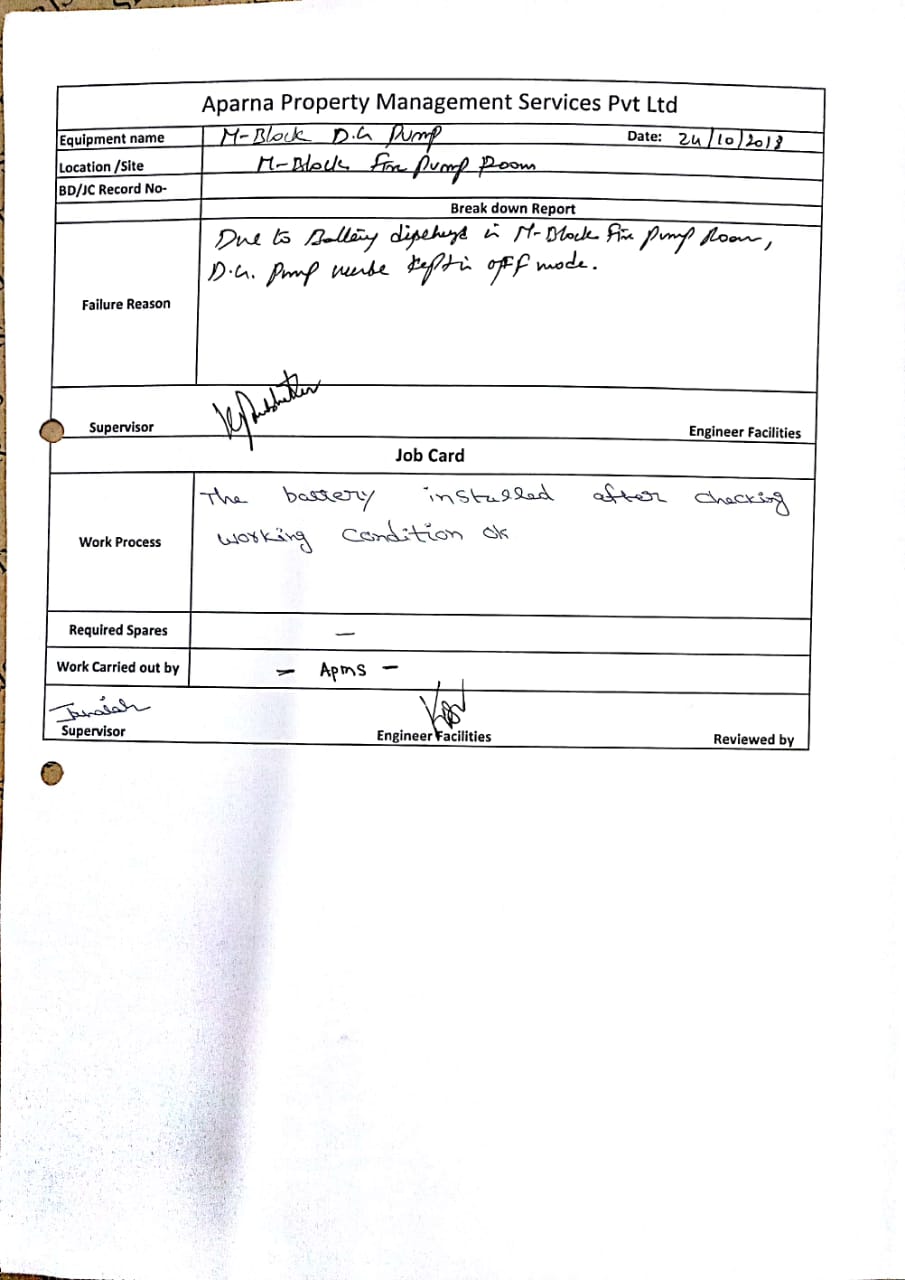 Aparna Property Management Services Pvt Ltd
Equipment name M-Block D.G Pump Date: 24/10/2018
Location /Site M-Block Fire Pump Room
BD/JC Record No-
Break down Report
Failure Reason
Due to Battery in M-Block fire pump Room,
D.G. Pump kept in off mode.
Supervisor Engineer Facilities
Job Card
Work Process
The battery installed after checking
working condition ok
Required Spares —
Work Carried out by — Apms —
Supervisor Engineer Facilities Reviewed by